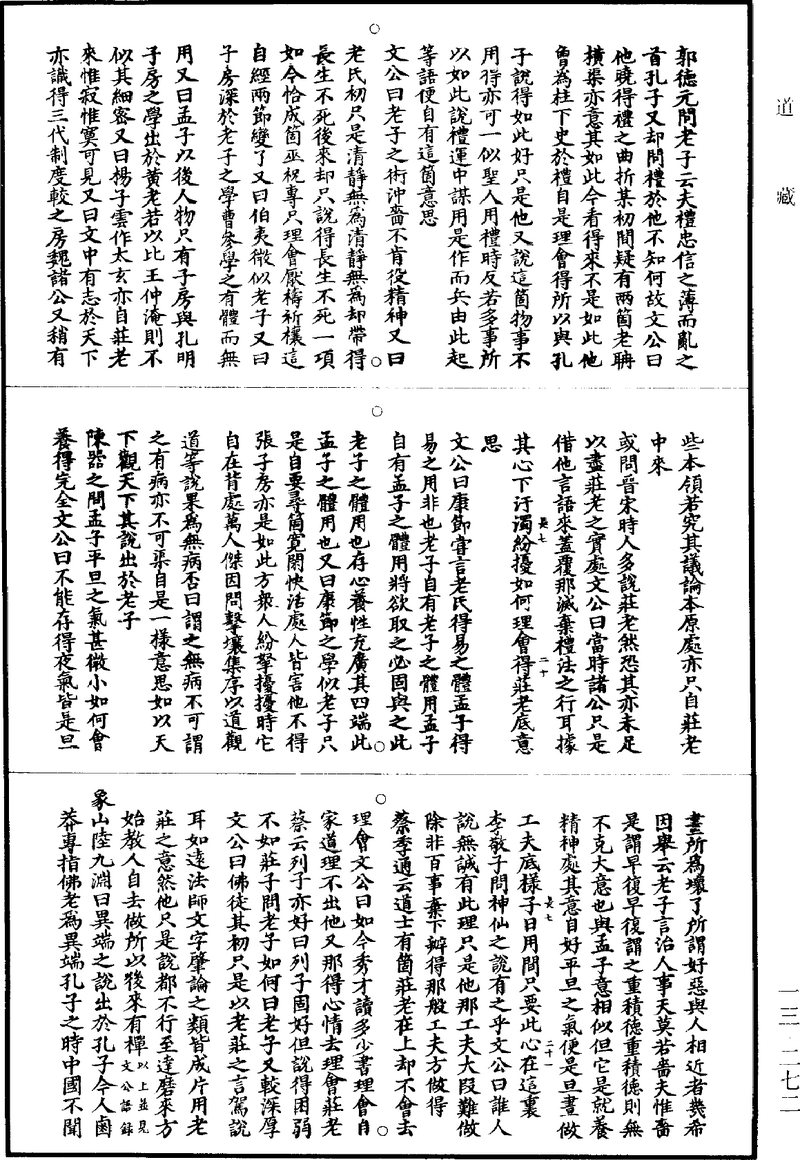 道藏
郭德元問老子云夫禮忠信之薄而亂之
首孔子又却問禮於他不知何故文公曰
他曉得禮之曲折某初間疑有兩箇老聃
橫渠亦意其如此今看得來不是如此他
曾為柱下史於禮自是理會得所以與孔
子說得如此好只是他又說這箇物事不
用得亦可一似聖人用禮時反若多事所
以如此說禮運中謀用是作而兵由此起
等語便自有這箇意思
文公曰老子之術沖嗇不肯役精神又曰
老氏初只是清靜無為清靜無為却帶得○
長生不死後來却只說得長生不死一項
如今恰成箇巫祝專只理會厭禱祈禳這
自經兩節變了又曰伯夷微似老子又曰
子房深於老子之學曹參學之有體而無
用又曰孟子以後人物只有子房與孔明
子房之學出於黃老若以比王仲淹則不
似其細密又曰楊子雲作太玄亦自莊老
來惟寂惟寞可見又曰文中有志於天下
亦識得三代制度較之房魏諸公又稍有
些本領若究其議論本原處亦只自莊老
中來
或問晉宋時人多說莊老然恐其亦未足
以盡莊老之實處文公曰當時諸公只是
借他言語來蓋覆那滅棄禮法之行耳據
其心下汙濁紛擾如何理會得莊老底意
長七 二十
思
文公曰康節嘗言老氏得易之體孟子得
易之用非也老子自有老子之體用孟子
自有孟子之體用將欲取之必固與之此
老子之體用也存心養性充廣其四端此○
孟子之體用也又曰康節之學似老子只
是自要尋箇寬閑快活處人皆害他不得
張子房亦是如此方衆人紛拏擾擾時它
自在背處萬人傑因問擊壤集序以道觀
道等說果為無病否曰謂之無病不可謂
之有病亦不可渠自是一樣意思如以天
下觀天下其說出於老子
陳器之問孟子平旦之氣甚微小如何會
養得完全文公曰不能存得夜氣皆是旦
晝所為壞了所謂好惡與人相近者幾希
因舉云老子言治人事天莫若嗇夫惟嗇
是謂早復早復謂之重積德重積德則無
不克大意也與孟子意相似但它是就養
精神處其意自好平旦之氣便是旦晝做
工夫底樣子日用間只要此心在這裏
長七 二十一
李敬子問神仙之說有之乎文公曰誰人
說無誠有此理只是他那工夫大段難做
除非百事棄下辦得那般工夫方做得
蔡季通云道士有箇莊老在上却不會去
理會文公曰如今秀才讀多少書理會自○
家道理不出他又那得心情去理會莊老
蔡云列子亦好曰列子固好但說得困弱
不如莊子問老子如何曰老子又較深厚
文公曰佛徒其初只是以老莊之言駕說
耳如遠法師文字肇論之類皆成片用老
莊之意然他只是說都不行至達磨來方
始教人自去做所以後來有禪以上並見文公語錄
象山陸九淵曰異端之說出於孔子今人鹵
莽專指佛老為異端孔子之時中國不聞
一三·二七二